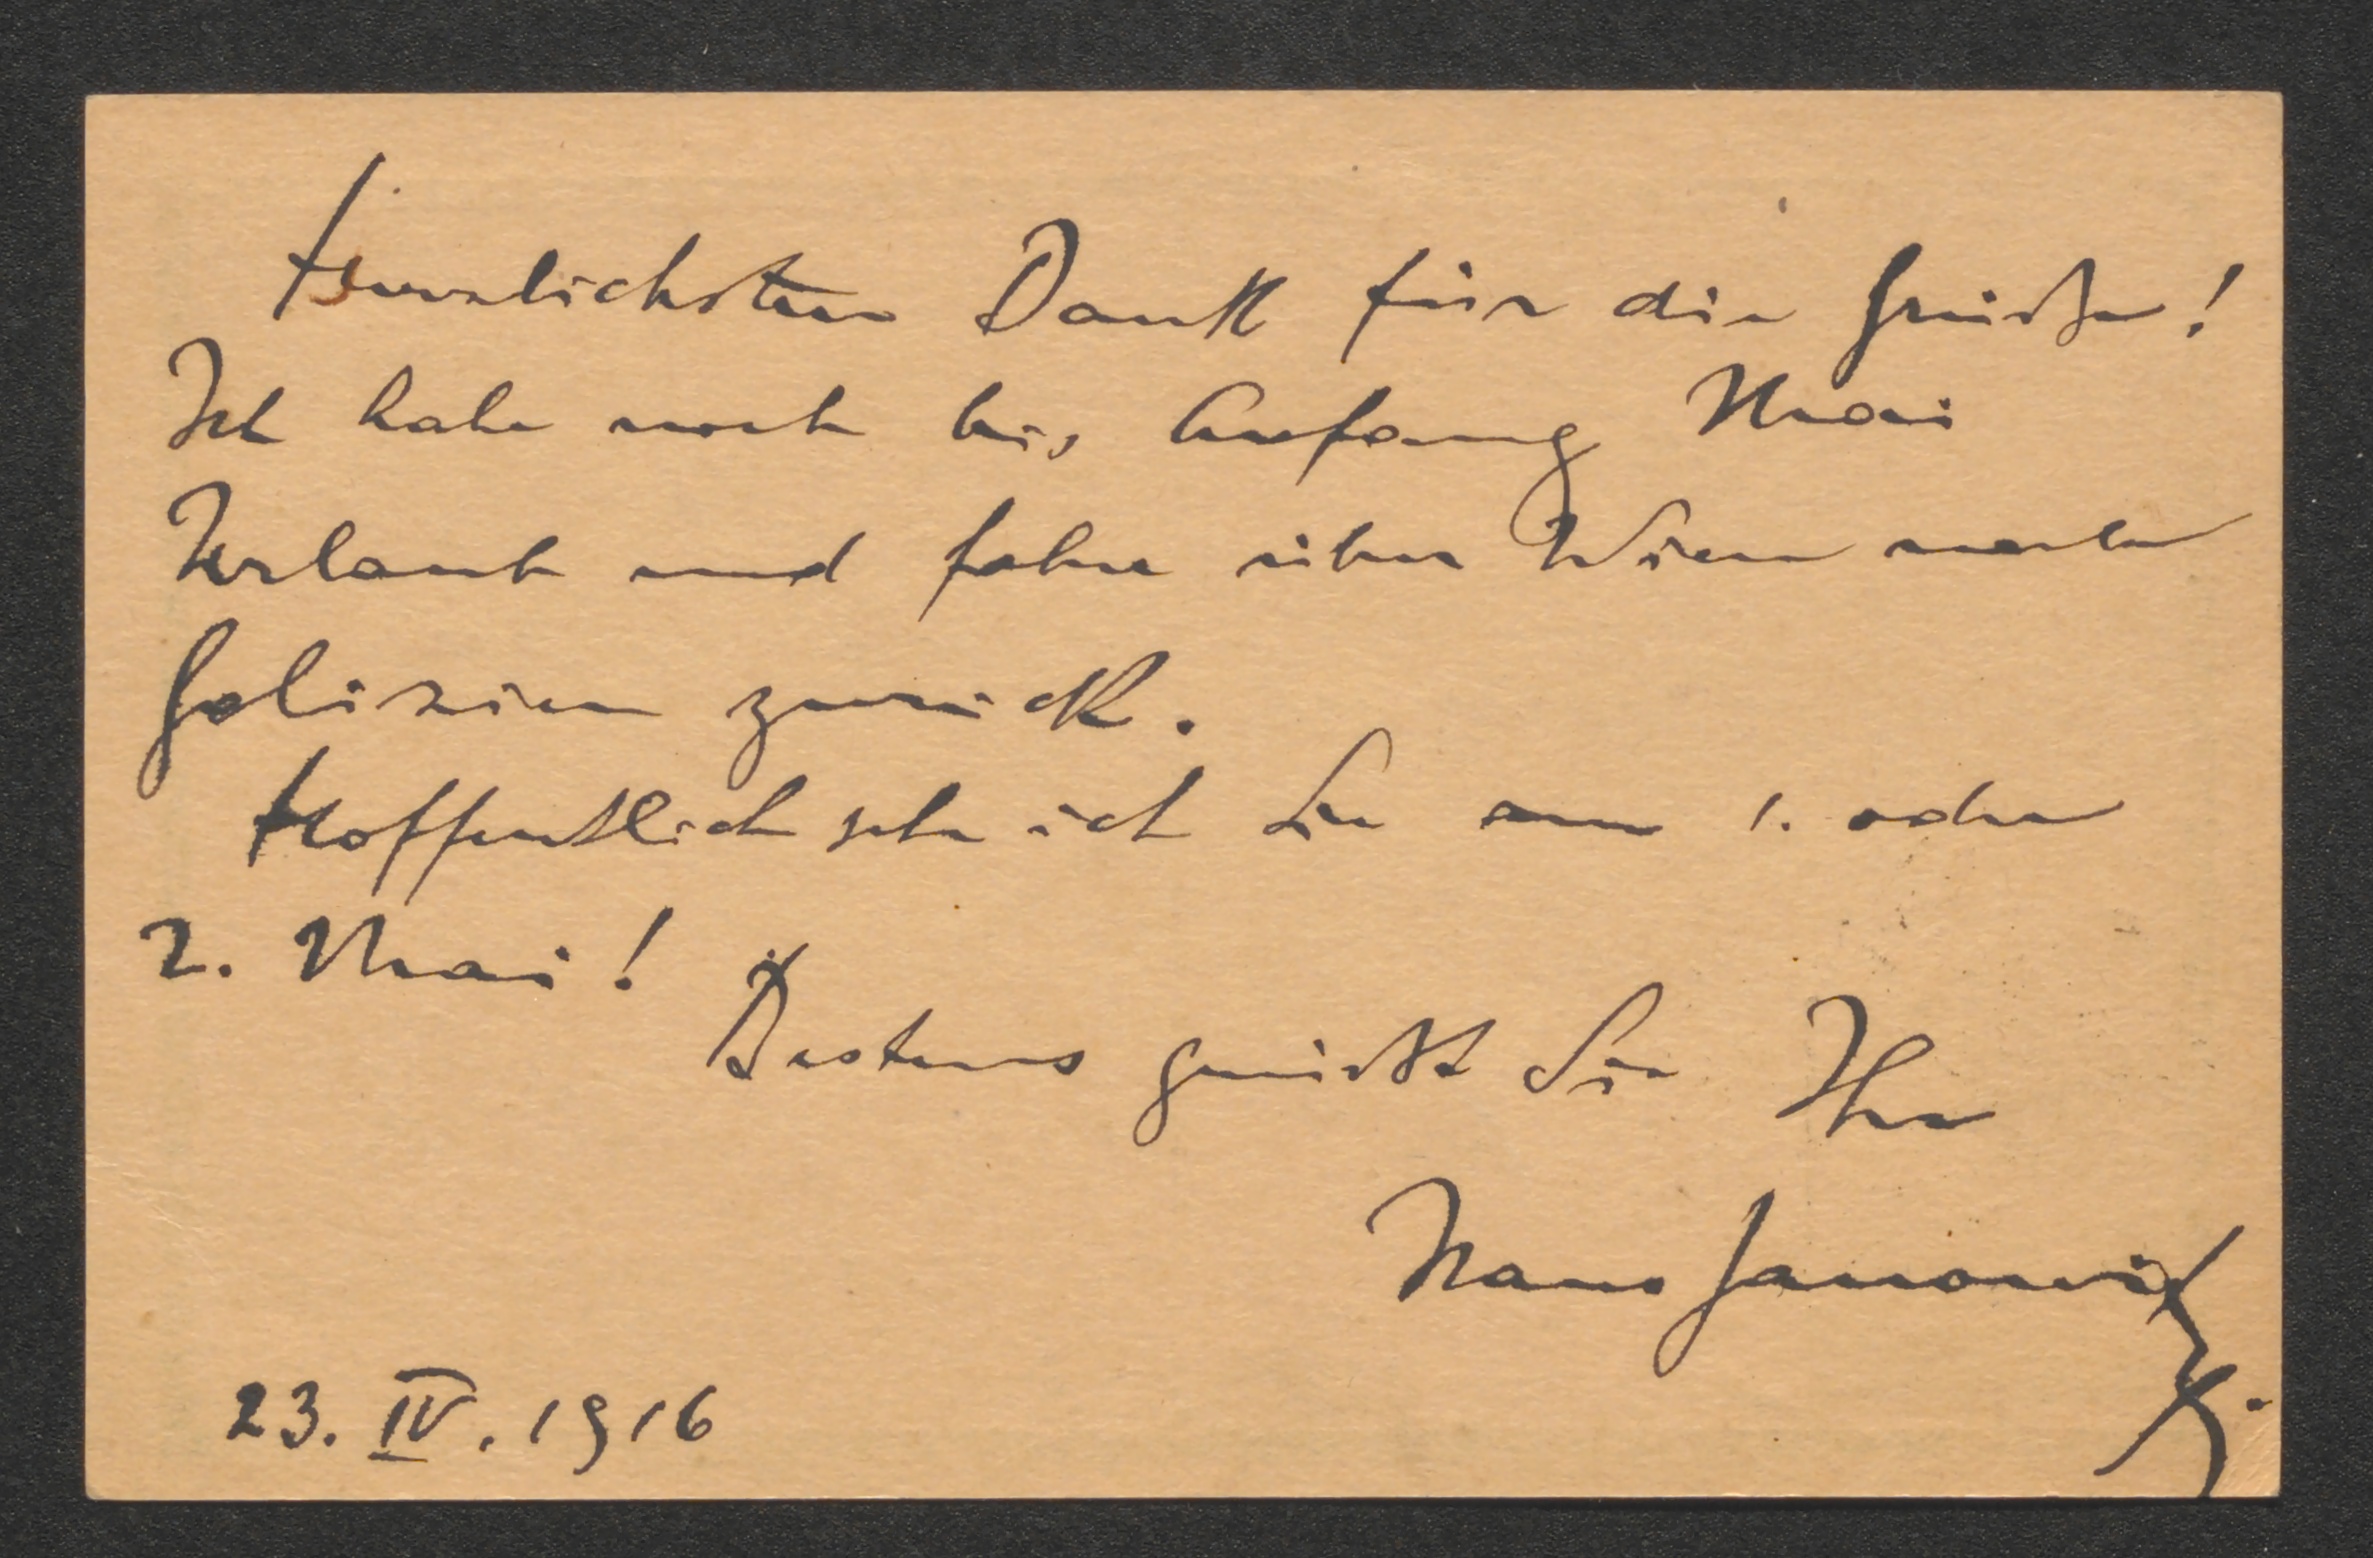 Herzlichsten Dank für die Grüße!
Ich habe noch bis Anfang Mai
Urlaub und fahre über Wien nach
Galizien zurück.
Hoffentlich sehe ich Sie am 1. oder
2. Mai!
Bestens grüßt Sie Ihr
Hans Janowitz
23. IV. 1916